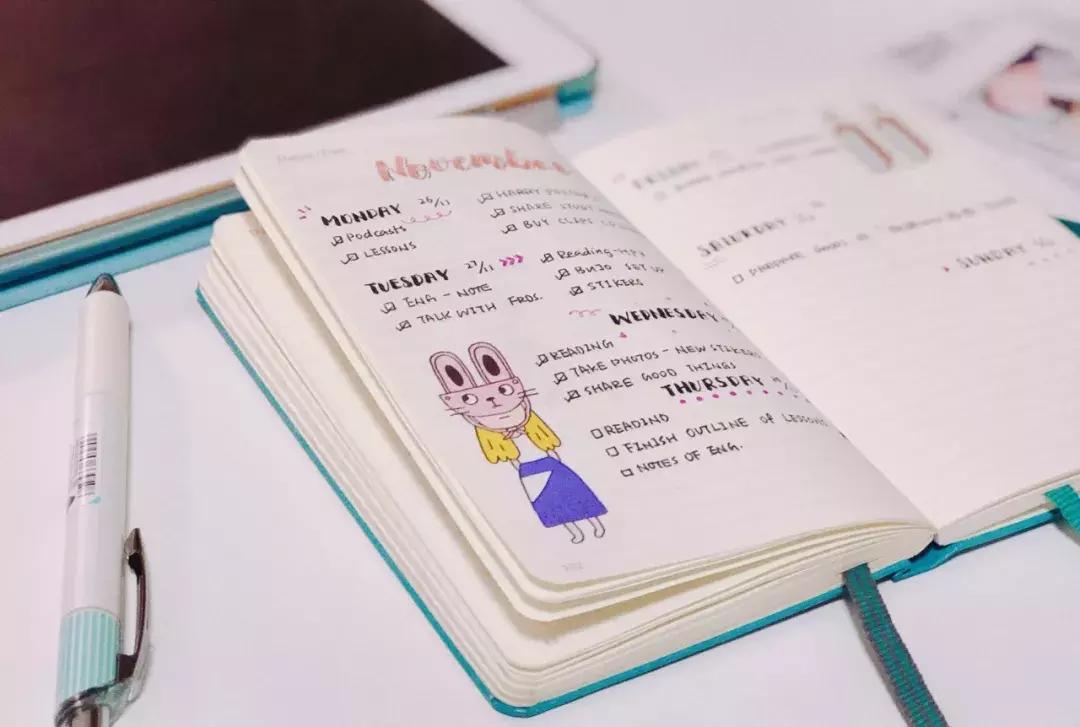 November
MONDAY 26/11
Podcasts
LESSONS
HARRY
SHARE STUDY
BUY CLAPS
TUESDAY 27/11
ENG - NOTE
TALK WITH FRDS.
Reading
BUJO SET UP
STICKERS
WEDNESDAY
READING
TAKE PHOTOS - NEW STICKERS
SHARE GOOD THINGS
THURSDAY
READING
FINISH OUTLINE of LESSONS
NOTES OF ENG.
11
FRIDAY
SATURDAY
PREPARE GOODS
SUNDAY